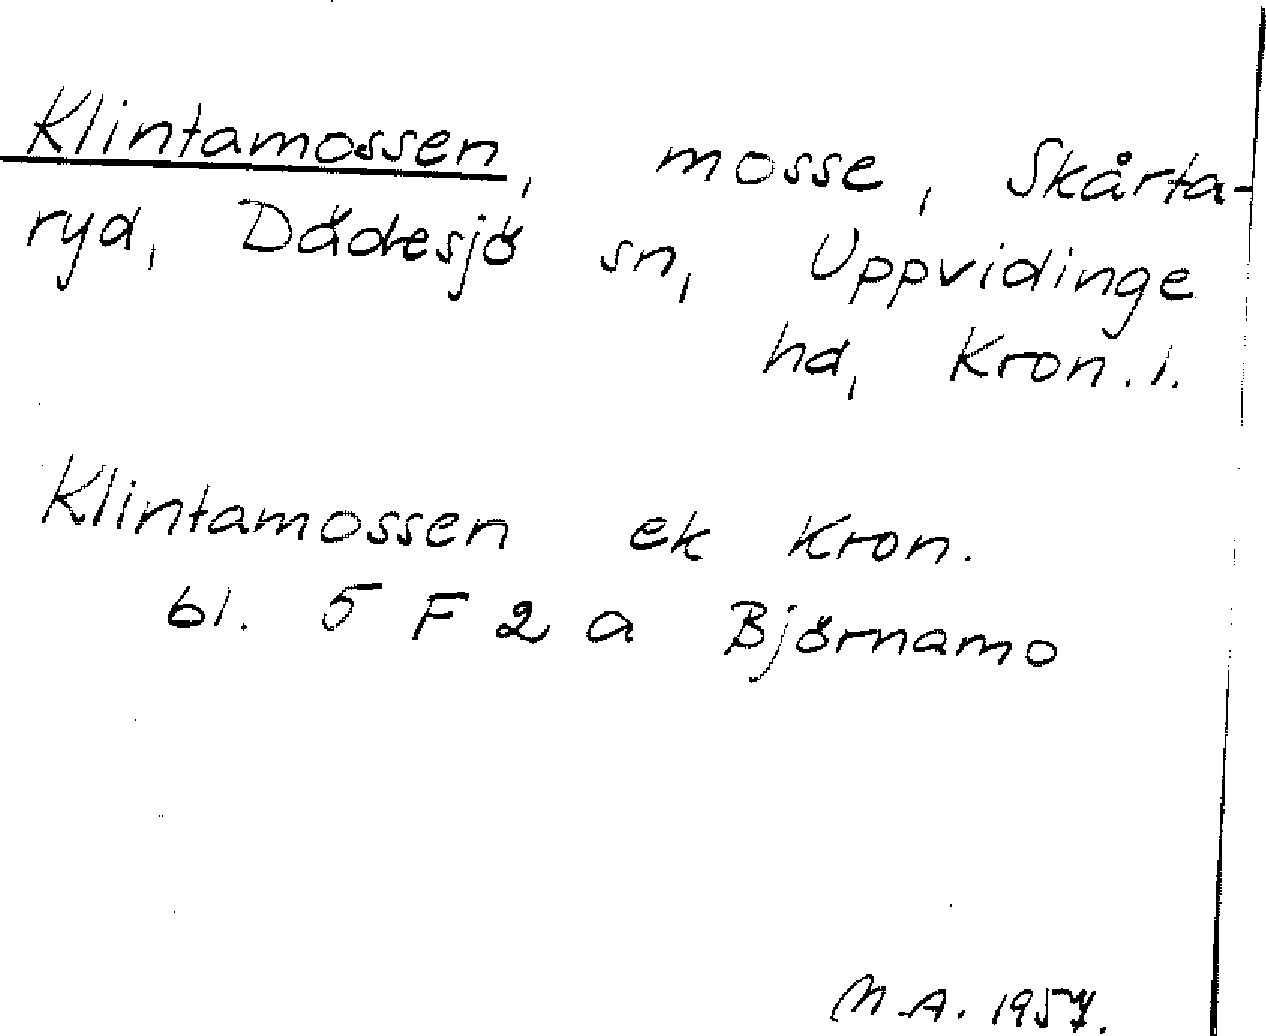 Klintamossen, mosse, Skårta-
ryd, Dädesjö sn, Uppvidinge
hd, Kron. l.
Klintamossen ek Kron.
bl. 5 F 2 a Björnamo
M.A. 1957.